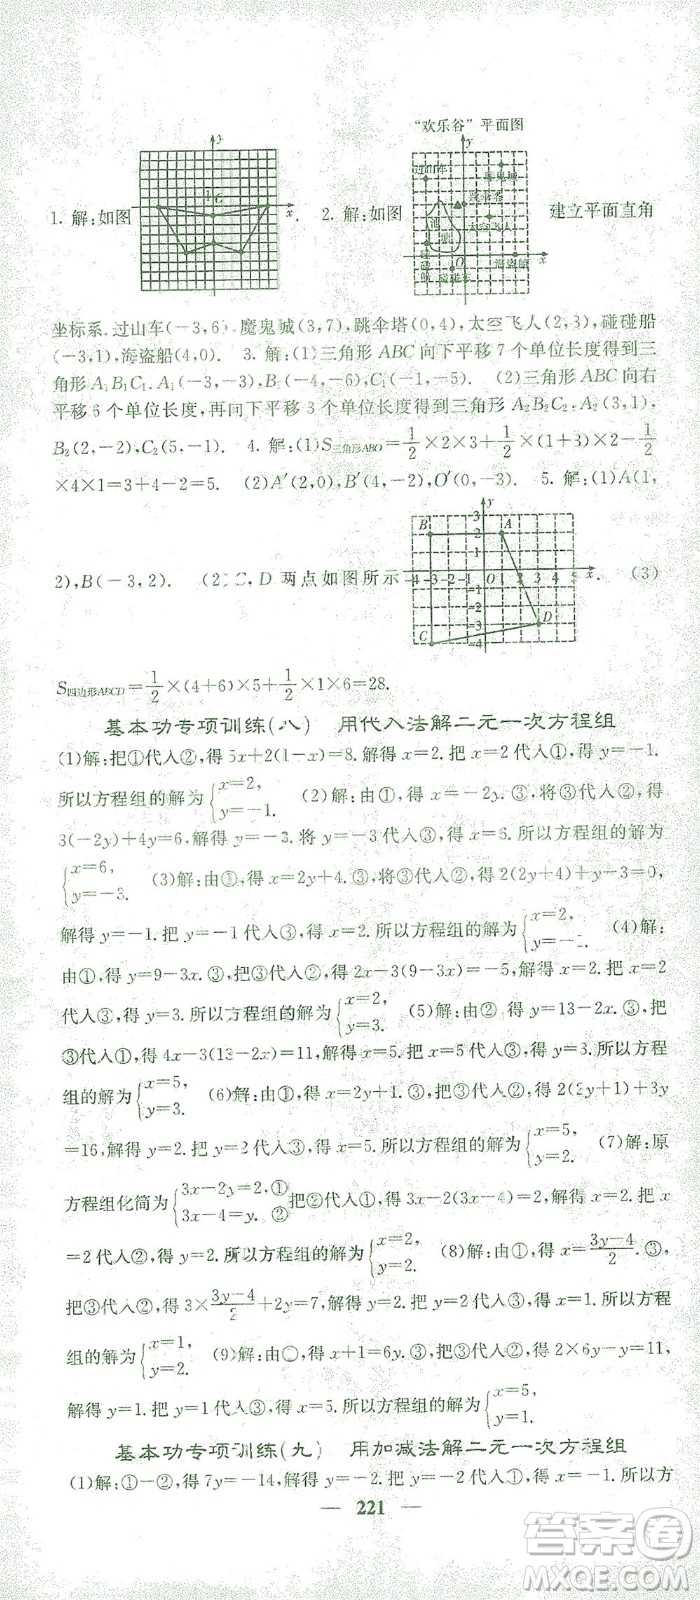 “欢乐谷”平面图
1. 解:如图
2. 解:如图
建立平面直角
坐标系.过山车(-3,6),魔鬼城(3,7),跳伞塔(0,4),太空飞人(2,3),碰碰船
(-3,1),海盗船(4,0). 3. 解:(1)三角形ABC向下平移7个单位长度得到三
角形A₁B₁C₁.A₁(-3,-3),B₁(-4,-6),C₁(-1,-5). (2)三角形ABC向右
平移6个单位长度,再向下平移3个单位长度得到三角形A₂B₂C₂.A₂(3,1),
B₂(2,-2),C₂(5,-1). 4. 解:(1)S三角形ABO=1/2×2×3+1/2×4×2-1/2
×4×1=3+4-2=5. (2)A′(2,0),B′(4,-2),O′(0,-3). 5. 解:(1)A(1,
2),B(-3,2). (2)C,D两点如图所示
(3)
S四边形ABCD=1/2×(4+6)×5+1/2×1×6=28.
基本功专项训练(八) 用代入法解二元一次方程组
(1)解:把①代入②,得5x+2(1-x)=8.解得x=2.把x=2代入①,得y=-1.
所以方程组的解为{x=2, y=-1. (2)解:由①,得x=-2y.③,将③代入②,得
3(-2y)+4y=6,解得y=-3.将y=-3代入③,得x=6.所以方程组的解为
{x=6, y=-3. (3)解:由①,得x=3+y.③把③代入②,得2y+5(3+y)=8,
解得y=-1.把y=-1代入③,得x=2.所以方程组的解为{x=2, y=-1. (4)解:
由①,得y=9-3x.③,把③代入②,得5x-2(9-3x)=4.解得x=2.把x=2
代入③,得y=3.所以方程组的解为{x=2, y=3. (5)解:由②,得y=13-2x.③,把
③代入①,得4x-3(13-2x)=11,解得x=5.把x=5代入③,得y=3.所以方程
组的解为{x=5, y=3. (6)解:由①,得x=2y+1.③,把③代入②,得2(2y+1)+3y
=16,解得y=2.把y=2代入③,得x=5.所以方程组的解为{x=5, y=2. (7)解:原
方程组化简为{3x-2y=2,① 3x-4y=-2. ②把②代入①,得x=2.把x
=2代入②,得y=2.所以方程组的解为{x=2, y=2. (8)解:由①,得x=(3y-4)/2.③,
把③代入②,得3×(3y-4)/2+2y=7,解得y=2.把y=2代入③,得x=1.所以方程
组的解为{x=1, y=2. (9)解:由①,得x+1=6y.③把③代入②,得2×6y-y=11,
解得y=1.把y=1代入③,得x=5.所以方程组的解为{x=5, y=1.
基本功专项训练(九) 用加减法解二元一次方程组
(1)解:①-②,得7y=-14,解得y=-2.把y=-2代入①,得x=-1.所以方
221
答案卷
MXQE.COM